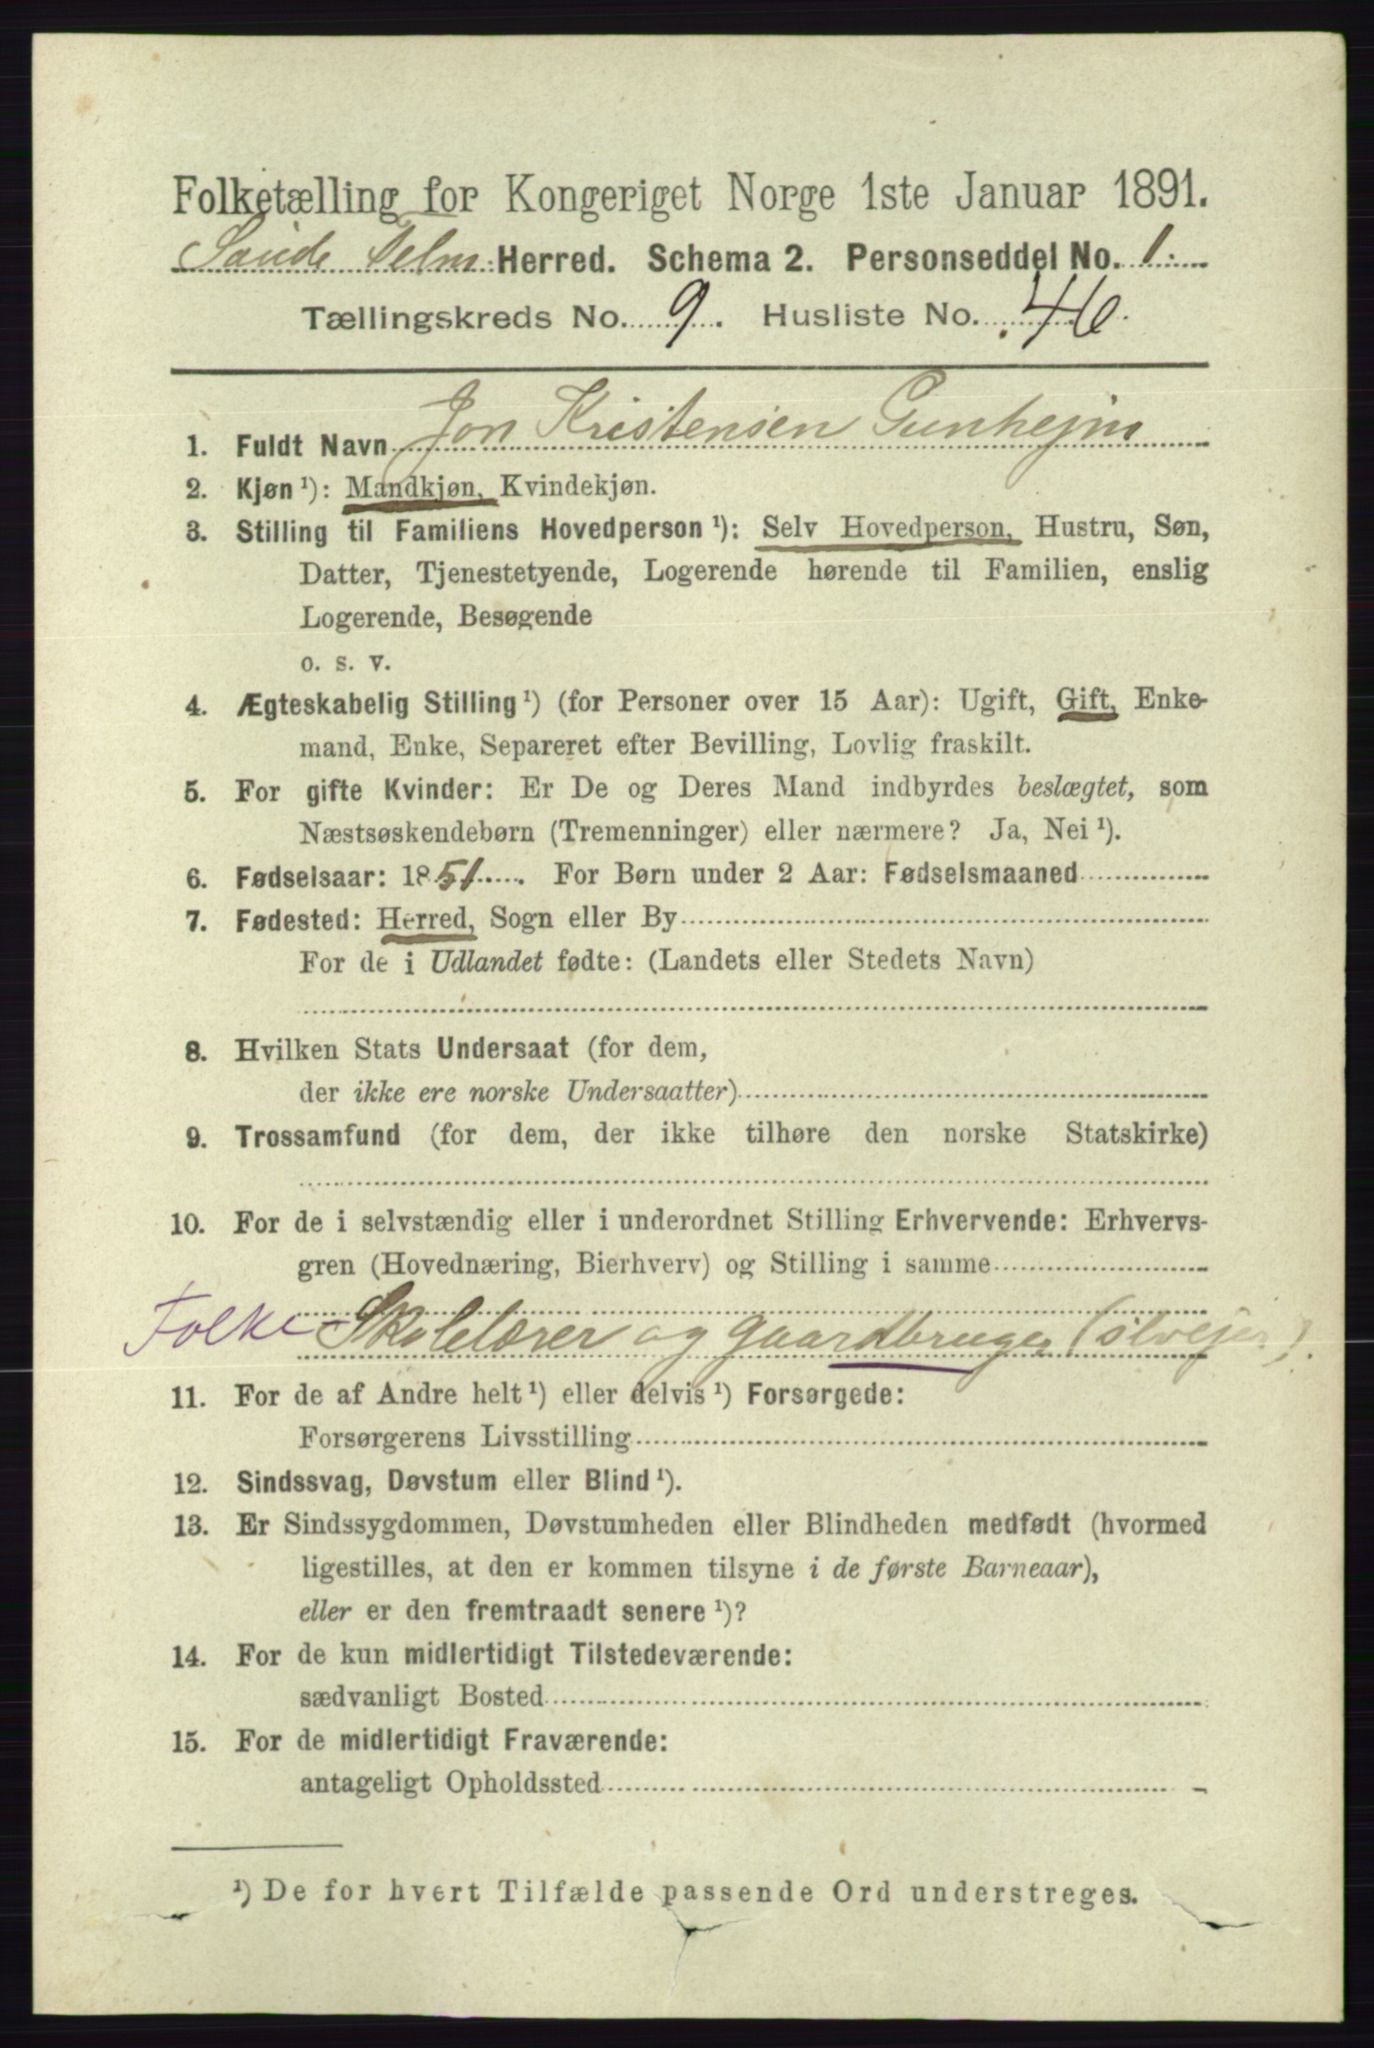 Folketælling for Kongeriget Norge 1ste Januar 1891.
Saude Telm. Herred. Schema 2. Personseddel No. 1.
Tællingskreds No. 9. Husliste No. 46.
1. Fuldt Navn Jon Kristensen Gunhejm
2. Kjøn ¹): Mandkjøn, Kvindekjøn.
3. Stilling til Familiens Hovedperson ¹): Selv Hovedperson, Hustru, Søn,
Datter, Tjenestetyende, Logerende hørende til Familien, enslig
Logerende, Besøgende
o. s. v.
4. Ægteskabelig Stilling ¹) (for Personer over 15 Aar): Ugift, Gift, Enke-
mand, Enke, Separeret efter Bevilling, Lovlig fraskilt.
5. For gifte Kvinder: Er De og Deres Mand indbyrdes beslægtet, som
Næstsøskendebørn (Tremenninger) eller nærmere? Ja, Nei ¹).
6. Fødselsaar: 1851. For Børn under 2 Aar: Fødselsmaaned
7. Fødested: Herred, Sogn eller By
For de i Udlandet fødte: (Landets eller Stedets Navn)
8. Hvilken Stats Undersaat (for dem,
der ikke ere norske Undersaatter)
9. Trossamfund (for dem, der ikke tilhøre den norske Statskirke)
10. For de i selvstændig eller i underordnet Stilling Erhvervende: Erhvervs-
gren (Hovednæring, Bierhverv) og Stilling i samme
Folke Skolelærer og gaardbruger (selvejer).
11. For de af Andre helt ¹) eller delvis ¹) Forsørgede:
Forsørgerens Livsstilling
12. Sindssvag, Døvstum eller Blind ¹).
13. Er Sindssygdommen, Døvstumheden eller Blindheden medfødt (hvormed
ligestilles, at den er kommen tilsyne i de første Barneaar),
eller er den fremtraadt senere ¹)?
14. For de kun midlertidigt Tilstedeværende:
sædvanligt Bosted
15. For de midlertidigt Fraværende:
antageligt Opholdssted
¹) De for hvert Tilfælde passende Ord understreges.